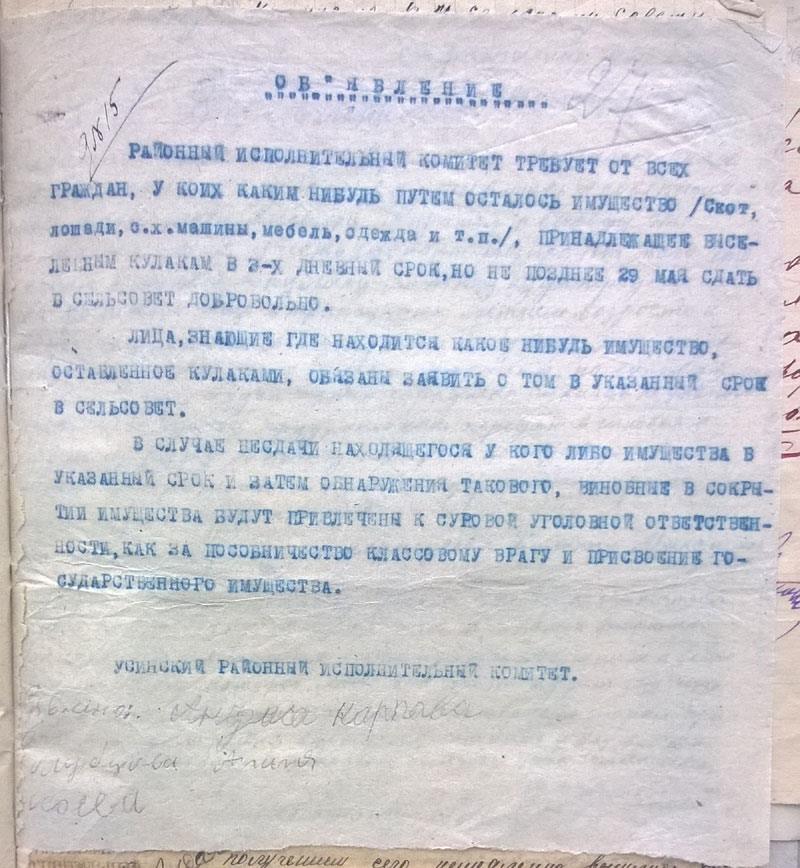 ОБ"ЯВЛЕНИЕ
27
РАЙОННЫЙ ИСПОЛНИТЕЛЬНЫЙ КОМИТЕТ ТРЕБУЕТ ОТ ВСЕХ
ГРАЖДАН, У КОИХ КАКИМ НИБУДЬ ПУТЕМ ОСТАЛОСЬ ИМУЩЕСТВО /Скот,
лошади,с.х.машины,мебель,одежда и т.п./, ПРИНАДЛЕЖАЩЕЕ ВЫСЕ-
ЛЕННЫМ КУЛАКАМ В 3-Х ДНЕВНЫЙ СРОК,НО НЕ ПОЗДНЕЕ 29 МАЯ СДАТЬ
В СЕЛЬСОВЕТ ДОБРОВОЛЬНО.
ЛИЦА,ЗНАЮЩИЕ ГДЕ НАХОДИТСЯ КАКОЕ НИБУДЬ ИМУЩЕСТВО,
ОСТАВЛЕННОЕ КУЛАКАМИ, ОБЯЗАНЫ ЗАЯВИТЬ О ТОМ В УКАЗАННЫЙ СРОК
В СЕЛЬСОВЕТ.
В СЛУЧАЕ НЕСДАЧИ НАХОДЯЩЕГОСЯ У КОГО ЛИБО ИМУЩЕСТВА В
УКАЗАННЫЙ СРОК И ЗАТЕМ ОБНАРУЖЕНИЯ ТАКОВОГО, ВИНОВНЫЕ В СОКРЫ-
ТИИ ИМУЩЕСТВА БУДУТ ПРИВЛЕЧЕНЫ К СУРОВОЙ УГОЛОВНОЙ ОТВЕТСТВЕН-
НОСТИ,КАК ЗА ПОСОБНИЧЕСТВО КЛАССОВОМУ ВРАГУ И ПРИСВОЕНИЕ ГО-
СУДАРСТВЕННОГО ИМУЩЕСТВА.
УСИНСКИЙ РАЙОННЫЙ ИСПОЛНИТЕЛЬНЫЙ КОМИТЕТ.
получением сего